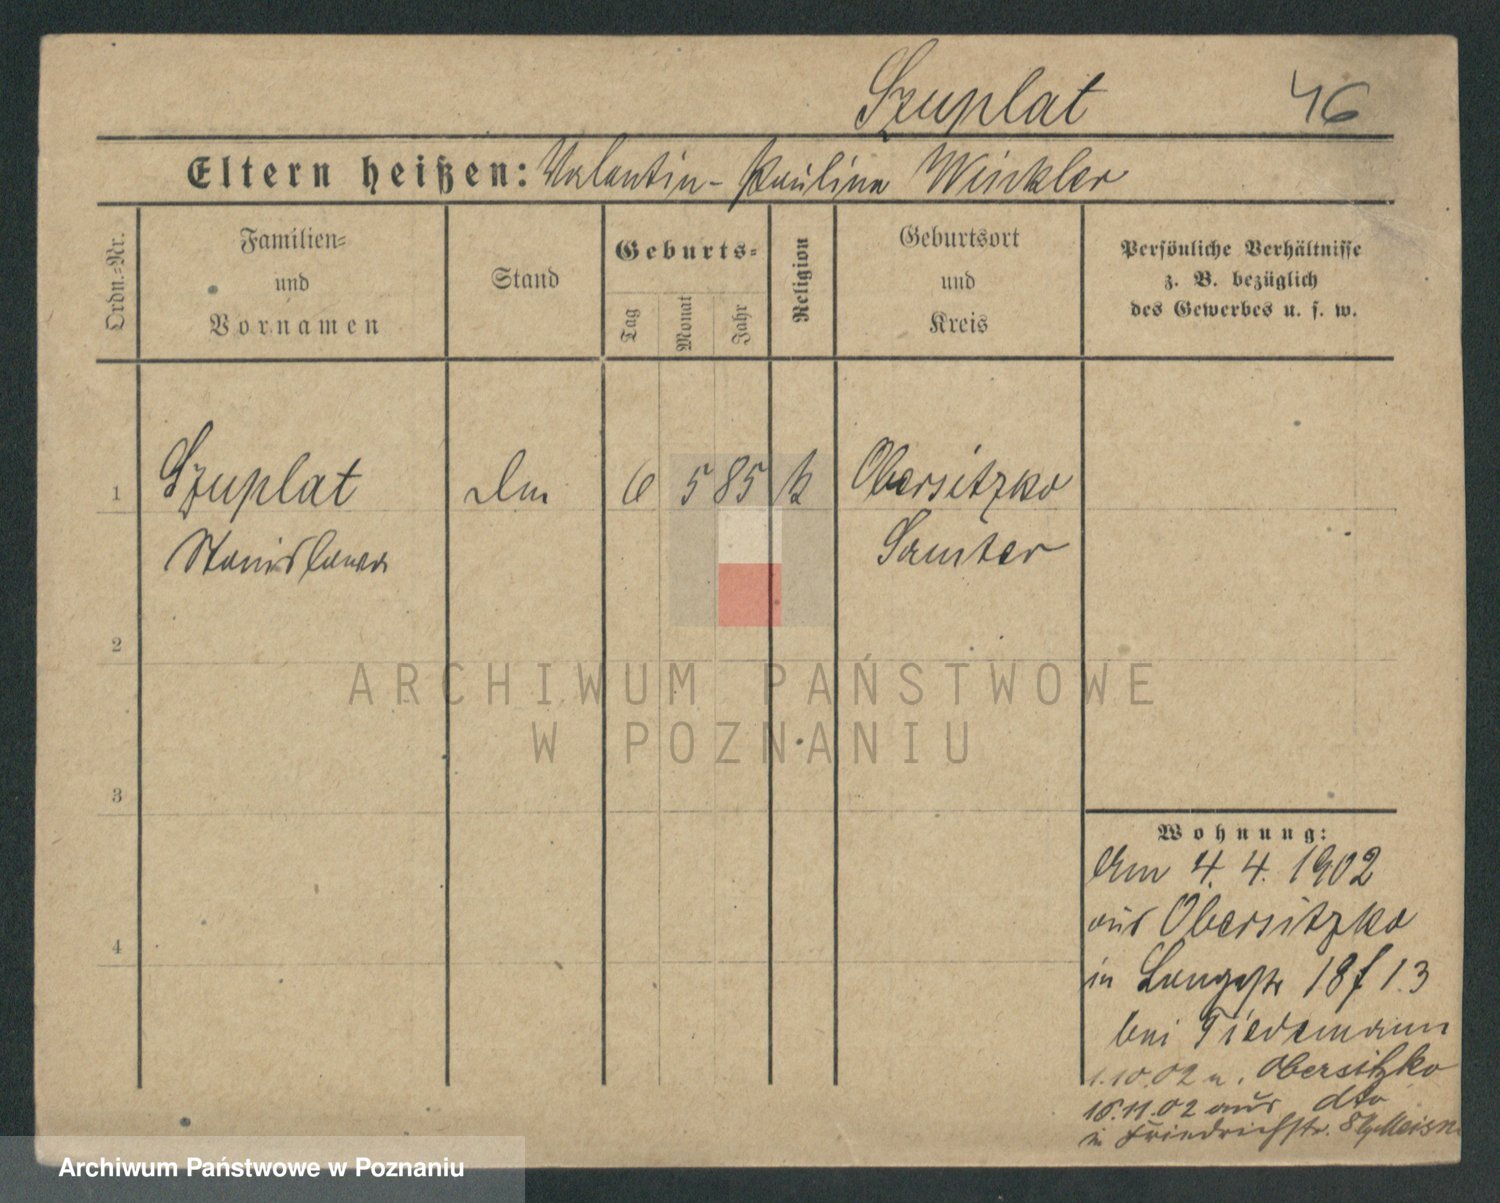 Szuplat 46
Eltern heißen: Valentin - Paulina Winkler
Ordn.-Nr.
Familien-
und
Vornamen
Stand
Geburts-
Tag
Monat
Jahr
Religion
Geburtsort
und
Kreis
Persönliche Verhältnisse
z. B. bezüglich
des Gewerbes u. s. w.
1 Szuplat 6 5 85 k Obersitzko
Stanislawa Samter
2
ARCHIWUM PAŃSTWOWE
W POZNANIU
3
4
Wohnung:
Am 4. 4. 1902
aus Obersitzko
in Langestr 18 f 1.3
bei Tiedemann
1.10.02 n. Obersitzko
18.11.02 aus dto
in Friedrichstr. 8
Archiwum Państwowe w Poznaniu